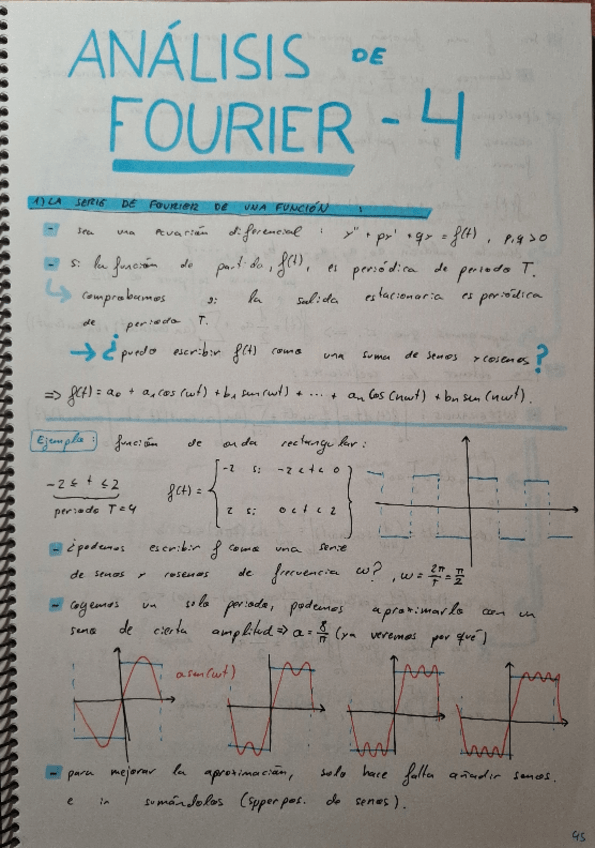 ANÁLISIS DE
FOURIER - 4
1) LA SERIE DE FOURIER DE UNA FUNCIÓN :
- sea una ecuación diferencial : y'' + py' + qy = f(t) , p,q > 0
- si la función de partida, f(t), es periódica de periodo T.
↳ comprobamos si la salida estacionaria es periódica
de periodo T.
→ ¿puedo escribir f(t) como una suma de senos y cosenos?
⇒ f(t) = a₀ + a₁cos(ωt) + b₁sen(ωt) + ... + aₙ cos(nωt) + bₙ sen(nωt).
Ejemplo: función de onda rectangular:
-2 ≤ t ≤ 2
periodo T=4
f(t) = { -2 si -2 < t < 0
2 si 0 < t < 2 }
- ¿podemos escribir f como una serie
de senos y cosenos de frecuencia ω? , ω = 2π/T = π/2
- cogemos un solo periodo, podemos aproximarlo con un
seno de cierta amplitud ⇒ a = 8/π (ya veremos por qué)
a sen(ωt)
- para mejorar la aproximación, solo hace falta añadir senos.
e ir sumándolos (spperpos. de senos).
45